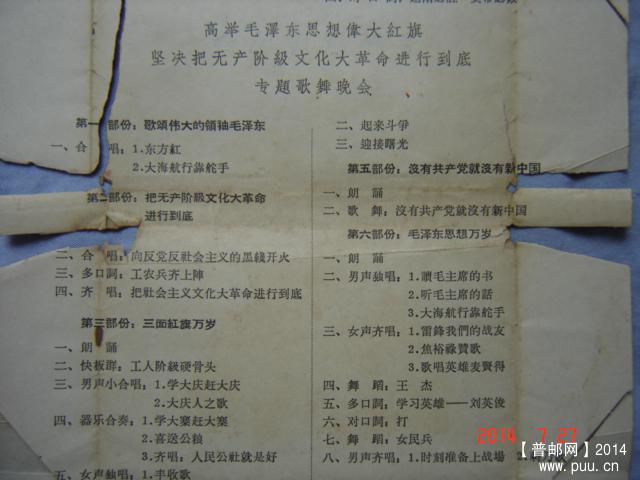 高举毛澤东思想偉大紅旗
坚决把无产阶級文化大革命进行到底
专題歌舞晚会
第一部份：歌頌伟大的領袖毛泽东
一、合　唱：1.东方紅
2.大海航行靠舵手
第二部份：把无产阶級文化大革命
进行到底
二、合　唱：向反党反社会主义的黑綫开火
三、多口詞：工农兵齐上陣
四、齐　唱：把社会主义文化大革命进行到底
第三部份：三面紅旗万岁
一、朗　誦
二、快板群：工人阶級硬骨头
三、男声小合唱：1.学大庆赶大庆
2.大庆人之歌
四、器乐合奏：1.学大寨赶大寨
2.喜送公粮
3.齐唱：人民公社就是好
五、女声独唱：1.丰收歌
二、起来斗爭
三、迎接曙光
第五部份：沒有共产党就沒有新中国
一、朗　誦
二、歌　舞：沒有共产党就沒有新中国
第六部份：毛泽东思想万岁
一、朗　誦
二、男声独唱：1.讀毛主席的书
2.听毛主席的話
3.大海航行靠舵手
三、女声齐唱：1.雷鋒我們的战友
2.焦裕祿贊歌
3.歌唱英雄麦賢得
四、舞　蹈：王　杰
五、多口詞：学习英雄——刘英俊
六、对口詞：打
七、舞　蹈：女民兵
八、男声齐唱：1.时刻准备上战場
2014 7 27
【普邮网】2014
www.puu.cn